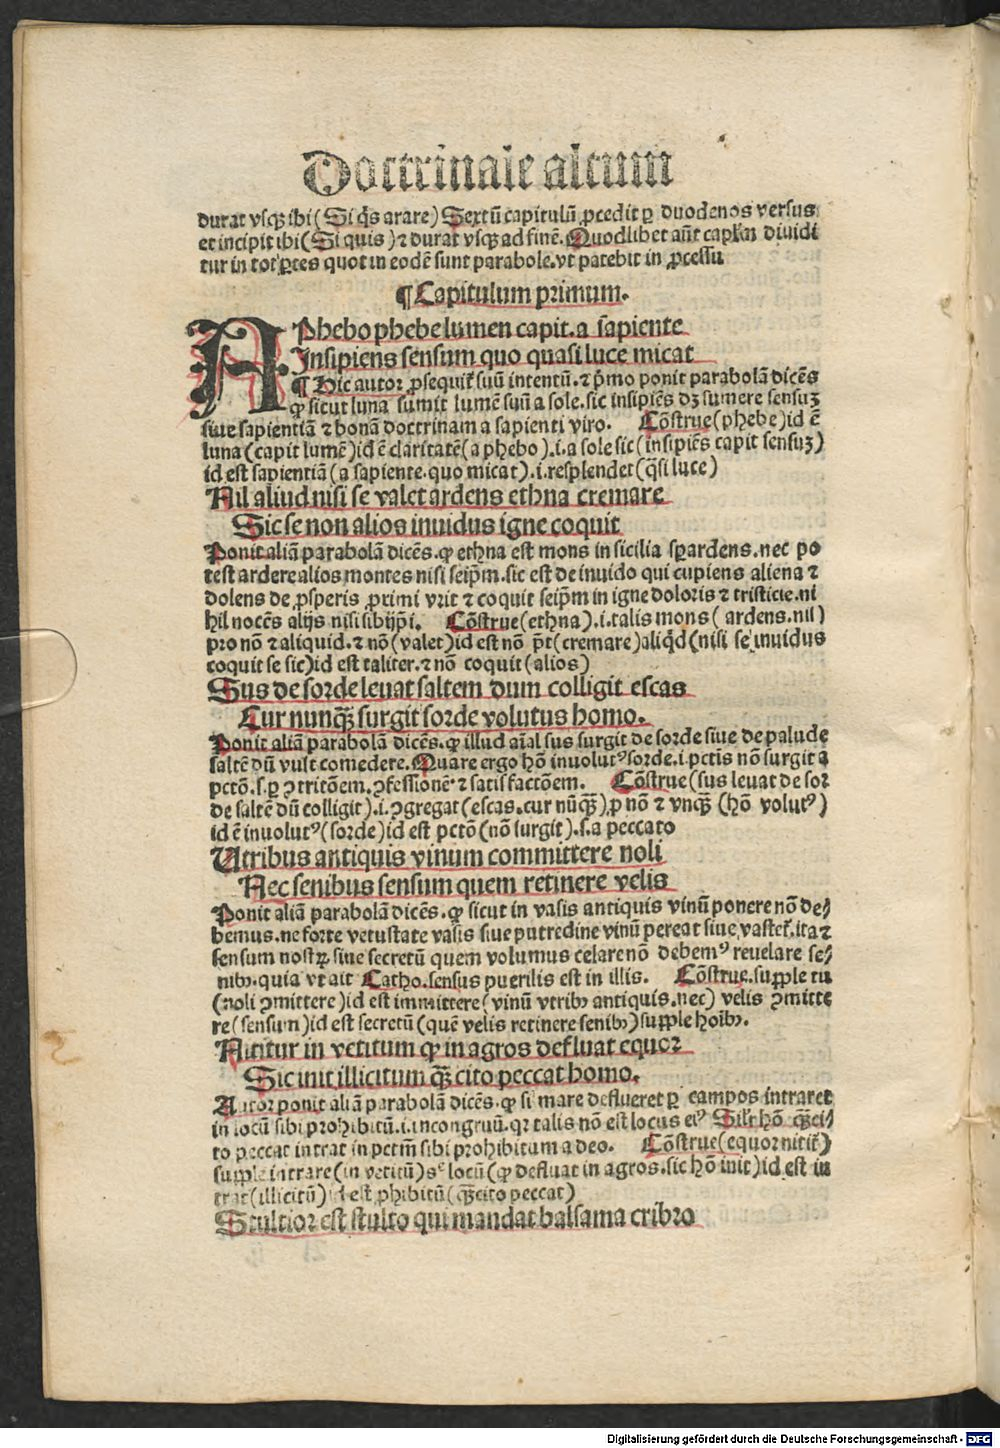 Doctrinale altum
durat vsqꝫ ibi (Si qͥs arare) Sextū capitulū ꝓcedit ꝑ duodenos versus
et incipit ibi (Si quis) ⁊ durat vsqꝫ ad finē. Quodlibet aūt caplm̄ diuidi
tur in tot ꝑtes quot in eodē sunt parabole. vt patebit in ꝓcessu
¶ Capitulum primum.
A Phebo phebe lumen capit. a sapiente
Insipiens sensum quo quasi luce micat
¶ Hic autor ꝓsequit᷑ suū intentū. ⁊ pͥmo ponit parabolā dicēs
ꝙ sicut luna sumit lumē suū a sole. sic insipiēs dꝫ sumere sensuꝫ
siue sapientiā ⁊ bonā doctrinam a sapienti viro. Cōstrue (phebe) id ē
luna (capit lumē) id ē claritatē (a phebo) .i. a sole sic (insipiēs capit sensuꝫ)
id est sapientiā (a sapiente. quo micat) .i. resplendet (q̄si luce)
Nil aliud nisi se valet ardens ethna cremare
Sic se non alios inuidus igne coquit
Ponit aliā parabolā dicēs. ꝙ ethna est mons in sicilia sꝑ ardens. nec po
test ardere alios montes nisi seip̄m. sic est de inuido qui cupiens aliena ⁊
dolens de ꝓsperis ꝓximi vrit ⁊ coquit seip̄m in igne doloris ⁊ tristicie. ni
hil nocēs alijs nisi sibijp̄i. Cōstrue (ethna) .i. talis mons (ardens. nil)
pro non ⁊ aliquid. ⁊ nō (valet) id est nō pōt (cremare) aliqͥd (nisi se inuidus
coquit se sic) id est taliter. ⁊ nō coquit (alios)
Sus de sorde leuat saltem dum colligit escas
Cur nunqꝫ̄ surgit sorde volutus homo.
Ponit aliā parabolā dicēs. ꝙ illud aīal sus surgit de sorde siue de palude
saltē dū vult comedere. Quare ergo hō inuolutꝰ sorde .i. pctīs nō surgit a
pctō. s. ꝑ ꝯtritōem. ꝯfessionē. ⁊ satisfactōem. Cōstrue (sus leuat de sor
de saltē dū colligit) .i. ꝯgregat (escas. cur nūqꝫ̄) ꝓ nō ⁊ vnqꝫ (hō volutꝰ)
id ē inuolutꝰ (sorde) id est pctō (nō surgit) .s. a peccato
Utribus antiquis vinum committere noli
Nec senibus sensum quem retinere velis
Ponit aliā parabolā dicēs. ꝙ sicut in vasis antiquis vinū ponere nō de⸗
bemus. ne forte vetustate vasis siue putredine vinū pereat siue vastet᷑. ita ⁊
sensum nostꝝ siue secretū quem volumus celare nō debemꝰ reuelare se⸗
nibꝫ. quia vt ait Catho. sensus puerilis est in illis. Cōstrue. supple tu
(noli ꝯmittere) id est immittere (vinū vtribꝫ antiquis. nec) velis ꝯmitte
re (sensum) id est secretū (quē velis retinere senibꝫ) supple hoībꝫ.
Nititur in vetitum ꝙ in agros defluat equor
Sic init illicitum qꝫ̄ cito peccat homo.
Autor ponit aliā parabolā dicēs. ꝙ si mare deflueret ꝑ campos intraret
in locū sibi prohibitū .i. incongruū. qꝛ talis nō est locus eiꝰ Silꝛ hō qꝫ̄ci⸗
to peccat intrat in pctm̄ sibi prohibitum a deo. Cōstrue (equor nitit᷑)
supple intrare (in vetitū) sꝫ locū (ꝙ defluat in agros. sic hō init) id est in
trat (illicitū) id est ꝓhibitū (qꝫ̄cito peccat)
Stultior est stulto qui mandat balsama cribro
Digitalisierung gefördert durch die Deutsche Forschungsgemeinschaft - DFG